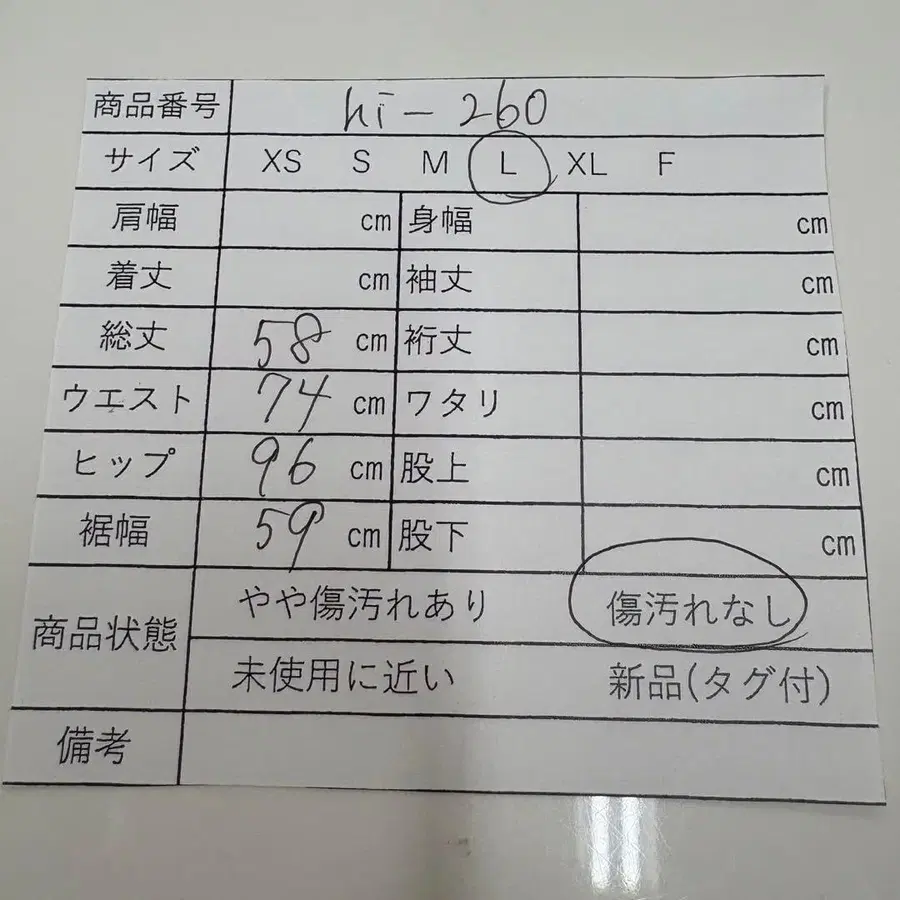 商品番号 hi-260
サイズ XS S M L XL F
肩幅 cm 身幅 cm
着丈 cm 袖丈 cm
総丈 58 cm 裄丈 cm
ウエスト 74 cm ワタリ cm
ヒップ 96 cm 股上 cm
裾幅 59 cm 股下 cm
商品状態 やや傷汚れあり 傷汚れなし
未使用に近い 新品(タグ付)
備考